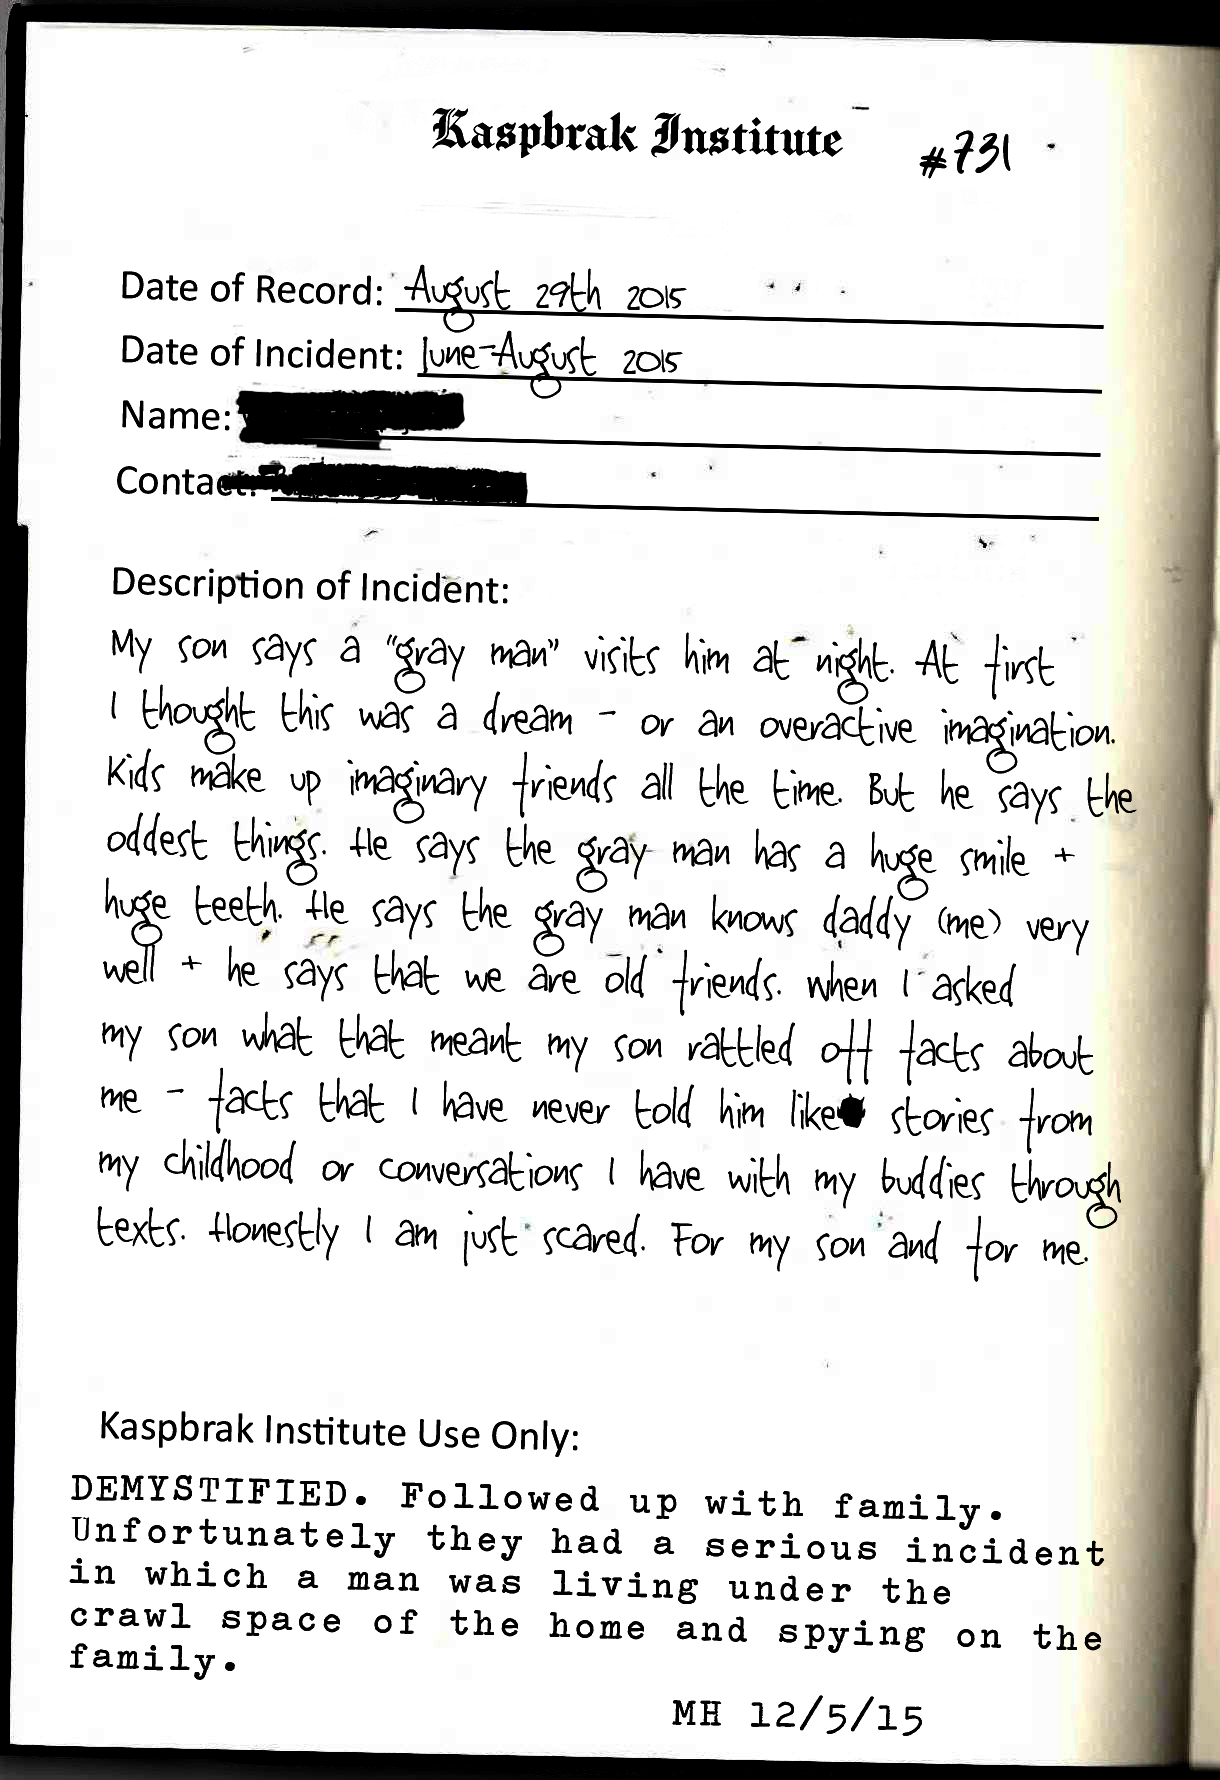 Kaspbrak Institute #731
Date of Record: August 29th 2015
Date of Incident: June-August 2015
Name:
Contact:
Description of Incident:
My son says a "gray man" visits him at night. At first
I thought this was a dream - or an overactive imagination.
Kids make up imaginary friends all the time. But he says the
oddest things. He says the gray man has a huge smile +
huge teeth. He says the gray man knows daddy (me) very
well + he says that we are old friends. When I asked
my son what that meant my son rattled off facts about
me - facts that I have never told him like stories from
my childhood or conversations I have with my buddies through
texts. Honestly I am just scared. For my son and for me.
Kaspbrak Institute Use Only:
DEMYSTIFIED. Followed up with family.
Unfortunately they had a serious incident
in which a man was living under the
crawl space of the home and spying on the
family.
MH 12/5/15